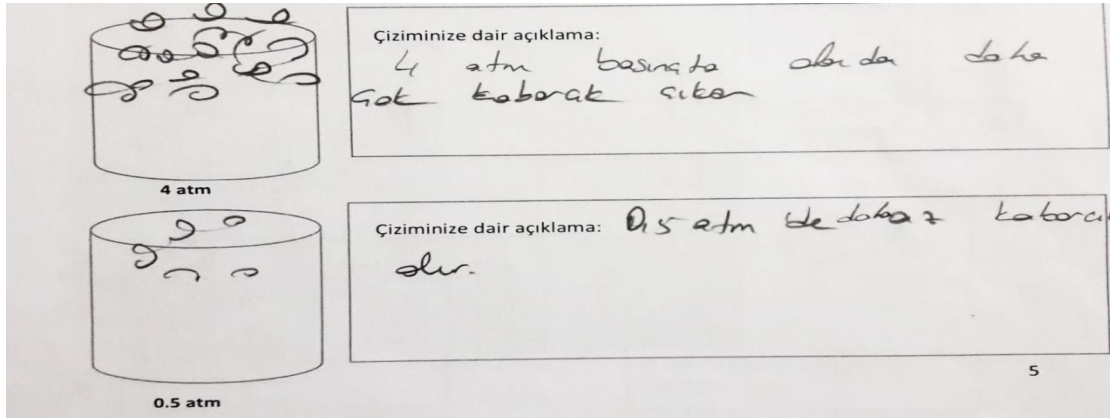 Çiziminize dair açıklama:
4 atm basınçta daha
çok kabarcık çıkar
4 atm
Çiziminize dair açıklama: 0,5 atm de daha az kabarcı
olur.
5
0.5 atm